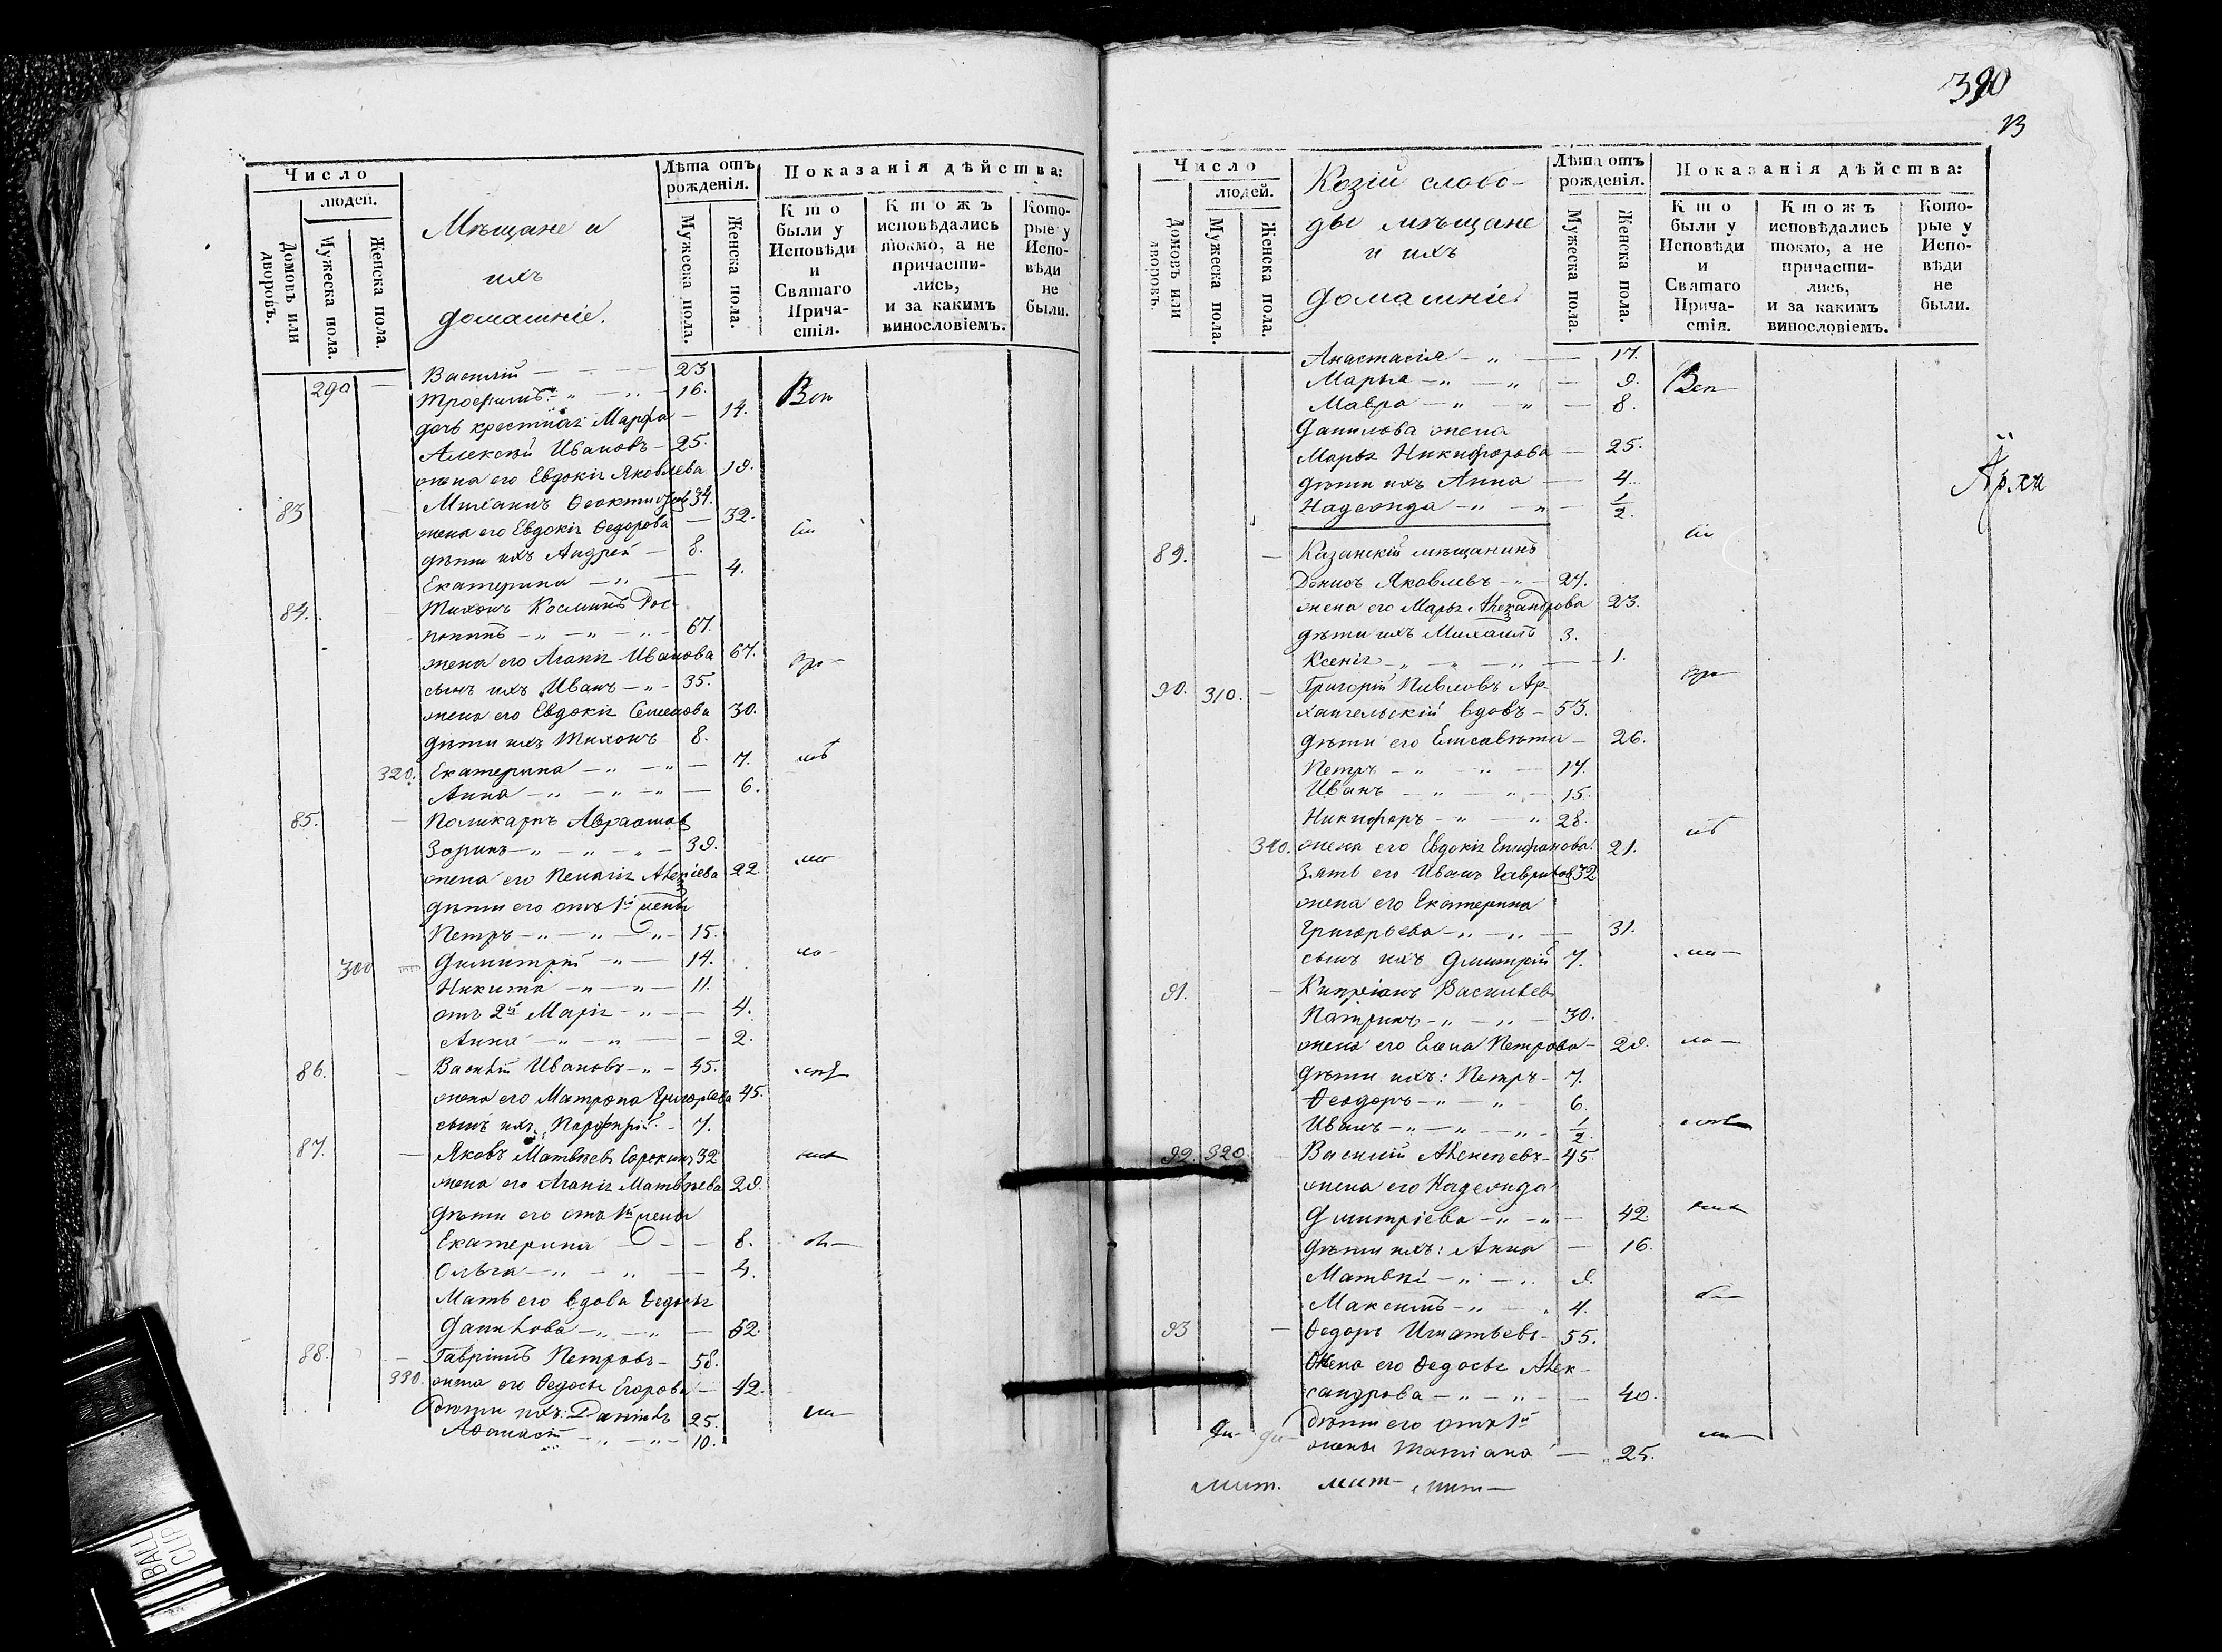 390
13
Число
людей.
Домовъ или дворовъ.
Мужеска пола.
Женска пола.
Мѣщане и
ихъ
домашніе.
Лѣта отъ рожденія.
Мужеска пола.
Женска пола.
Показанія дѣйства:
Кто были у Исповѣди и Святаго Причастія.
Ктожъ исповѣдались токмо, а не причастились, и за какимъ винословіемъ.
Которые у Исповѣди не были.
Василій 23
290 Трофимъ 16.
дочь крестная Марфа 14.
Алексѣй Ивановъ 25.
жена его Евдокія Яковлева 19.
83 Михаилъ Феоктистовъ 34.
жена его Евдокія Федорова 32.
дѣти ихъ Андрей 8.
Екатерина 4.
84. Тихонъ Косминъ Рос-
67.
жена его Агапія Иванова 67.
сынъ ихъ Иванъ 35.
жена его Евдокія Семенова 30.
дѣти ихъ Тихонъ 8.
320. Екатерина 7.
Анна 6.
85. Поликарпъ Авраамовъ
Зоринъ 39.
жена его Пелагія Алексіева 22.
дѣти его отъ 1й жены
Петръ 15.
300 Димитрій 14.
Никита 11.
отъ 2й Марія 4.
Анна 2.
86. Василій Ивановъ 45.
жена его Матрона Григорьева 45.
сынъ ихъ Порфирій 7.
87. Яковъ Матвѣевъ Сорокинъ 32
жена его Агапія Матвѣева 29.
дѣти его отъ 1й жены
Екатерина 8.
Ольга 4.
Мать его вдова Федосья
Данилова 52.
88. Гавріилъ Петровъ 58.
330. жена его Федосья Егорова 42.
дѣти ихъ: Даніилъ 25.
Афанасій 10.
Число
людей.
Домовъ или дворовъ.
Мужеска пола.
Женска пола.
Козіи слобо-
ды мѣщане
и ихъ
домашніе
Лѣта отъ рожденія.
Мужеска пола.
Женска пола.
Показанія дѣйства:
Кто были у Исповѣди и Святаго Причастія.
Ктожъ исповѣдались токмо, а не причастились, и за какимъ винословіемъ.
Которые у Исповѣди не были.
Анастасія 17.
Марья 9.
Мавра 8.
Данилова жена
Марья Никифорова 25.
дѣти ихъ Анна 4.
Надежда 1/2.
89. Казанскій мѣщанинъ
Яковлевъ 27.
жена его Марья Александрова 23.
дѣти ихъ Михаилъ 3.
Ксенія 1.
90. 310. Григорій Павловъ Ар-
хангельскій вдовъ 53.
дѣти его Елисавета 26.
Петръ 17.
Иванъ 15.
Никифоръ 28.
340. жена его Евдокія Епифанова 21.
Зять его Иванъ Гавриловъ 32
жена его Екатерина
Григорьева 31.
сынъ ихъ Дмитрій 7.
91. Кипріанъ Васильевъ
30.
жена его Елена Петрова 29.
дѣти ихъ: Петръ 7.
Феодоръ 6.
Иванъ 1/2.
92. 320. Василій Алексѣевъ 45.
жена его Надежда
Дмитріева 42.
дѣти ихъ: Анна 16.
Матвѣй 9.
Максимъ 4.
93 Федоръ Игнатьевъ 55.
Жена его Федосья Алек-
сандрова 40.
дѣти его отъ 1й
жены Татіана 25.
BALL
CLIP